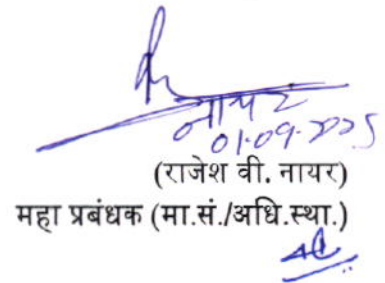 नायर
01.09.2025
(राजेश वी. नायर)
महा प्रबंधक (मा.सं./अधि.स्था.)